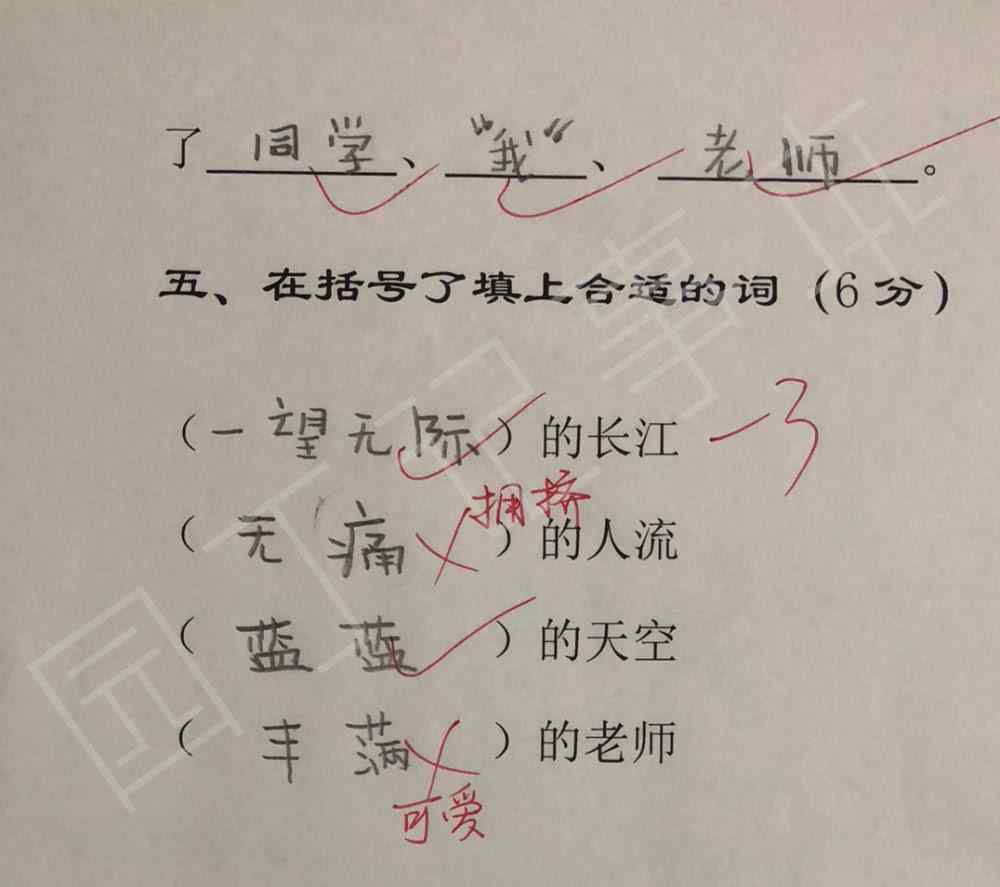 了 同学、"我"、老师。
五、在括号了填上合适的词(6分)
(一望无际)的长江 -3
拥挤
(无痛)的人流
(蓝蓝)的天空
(丰满)的老师
可爱